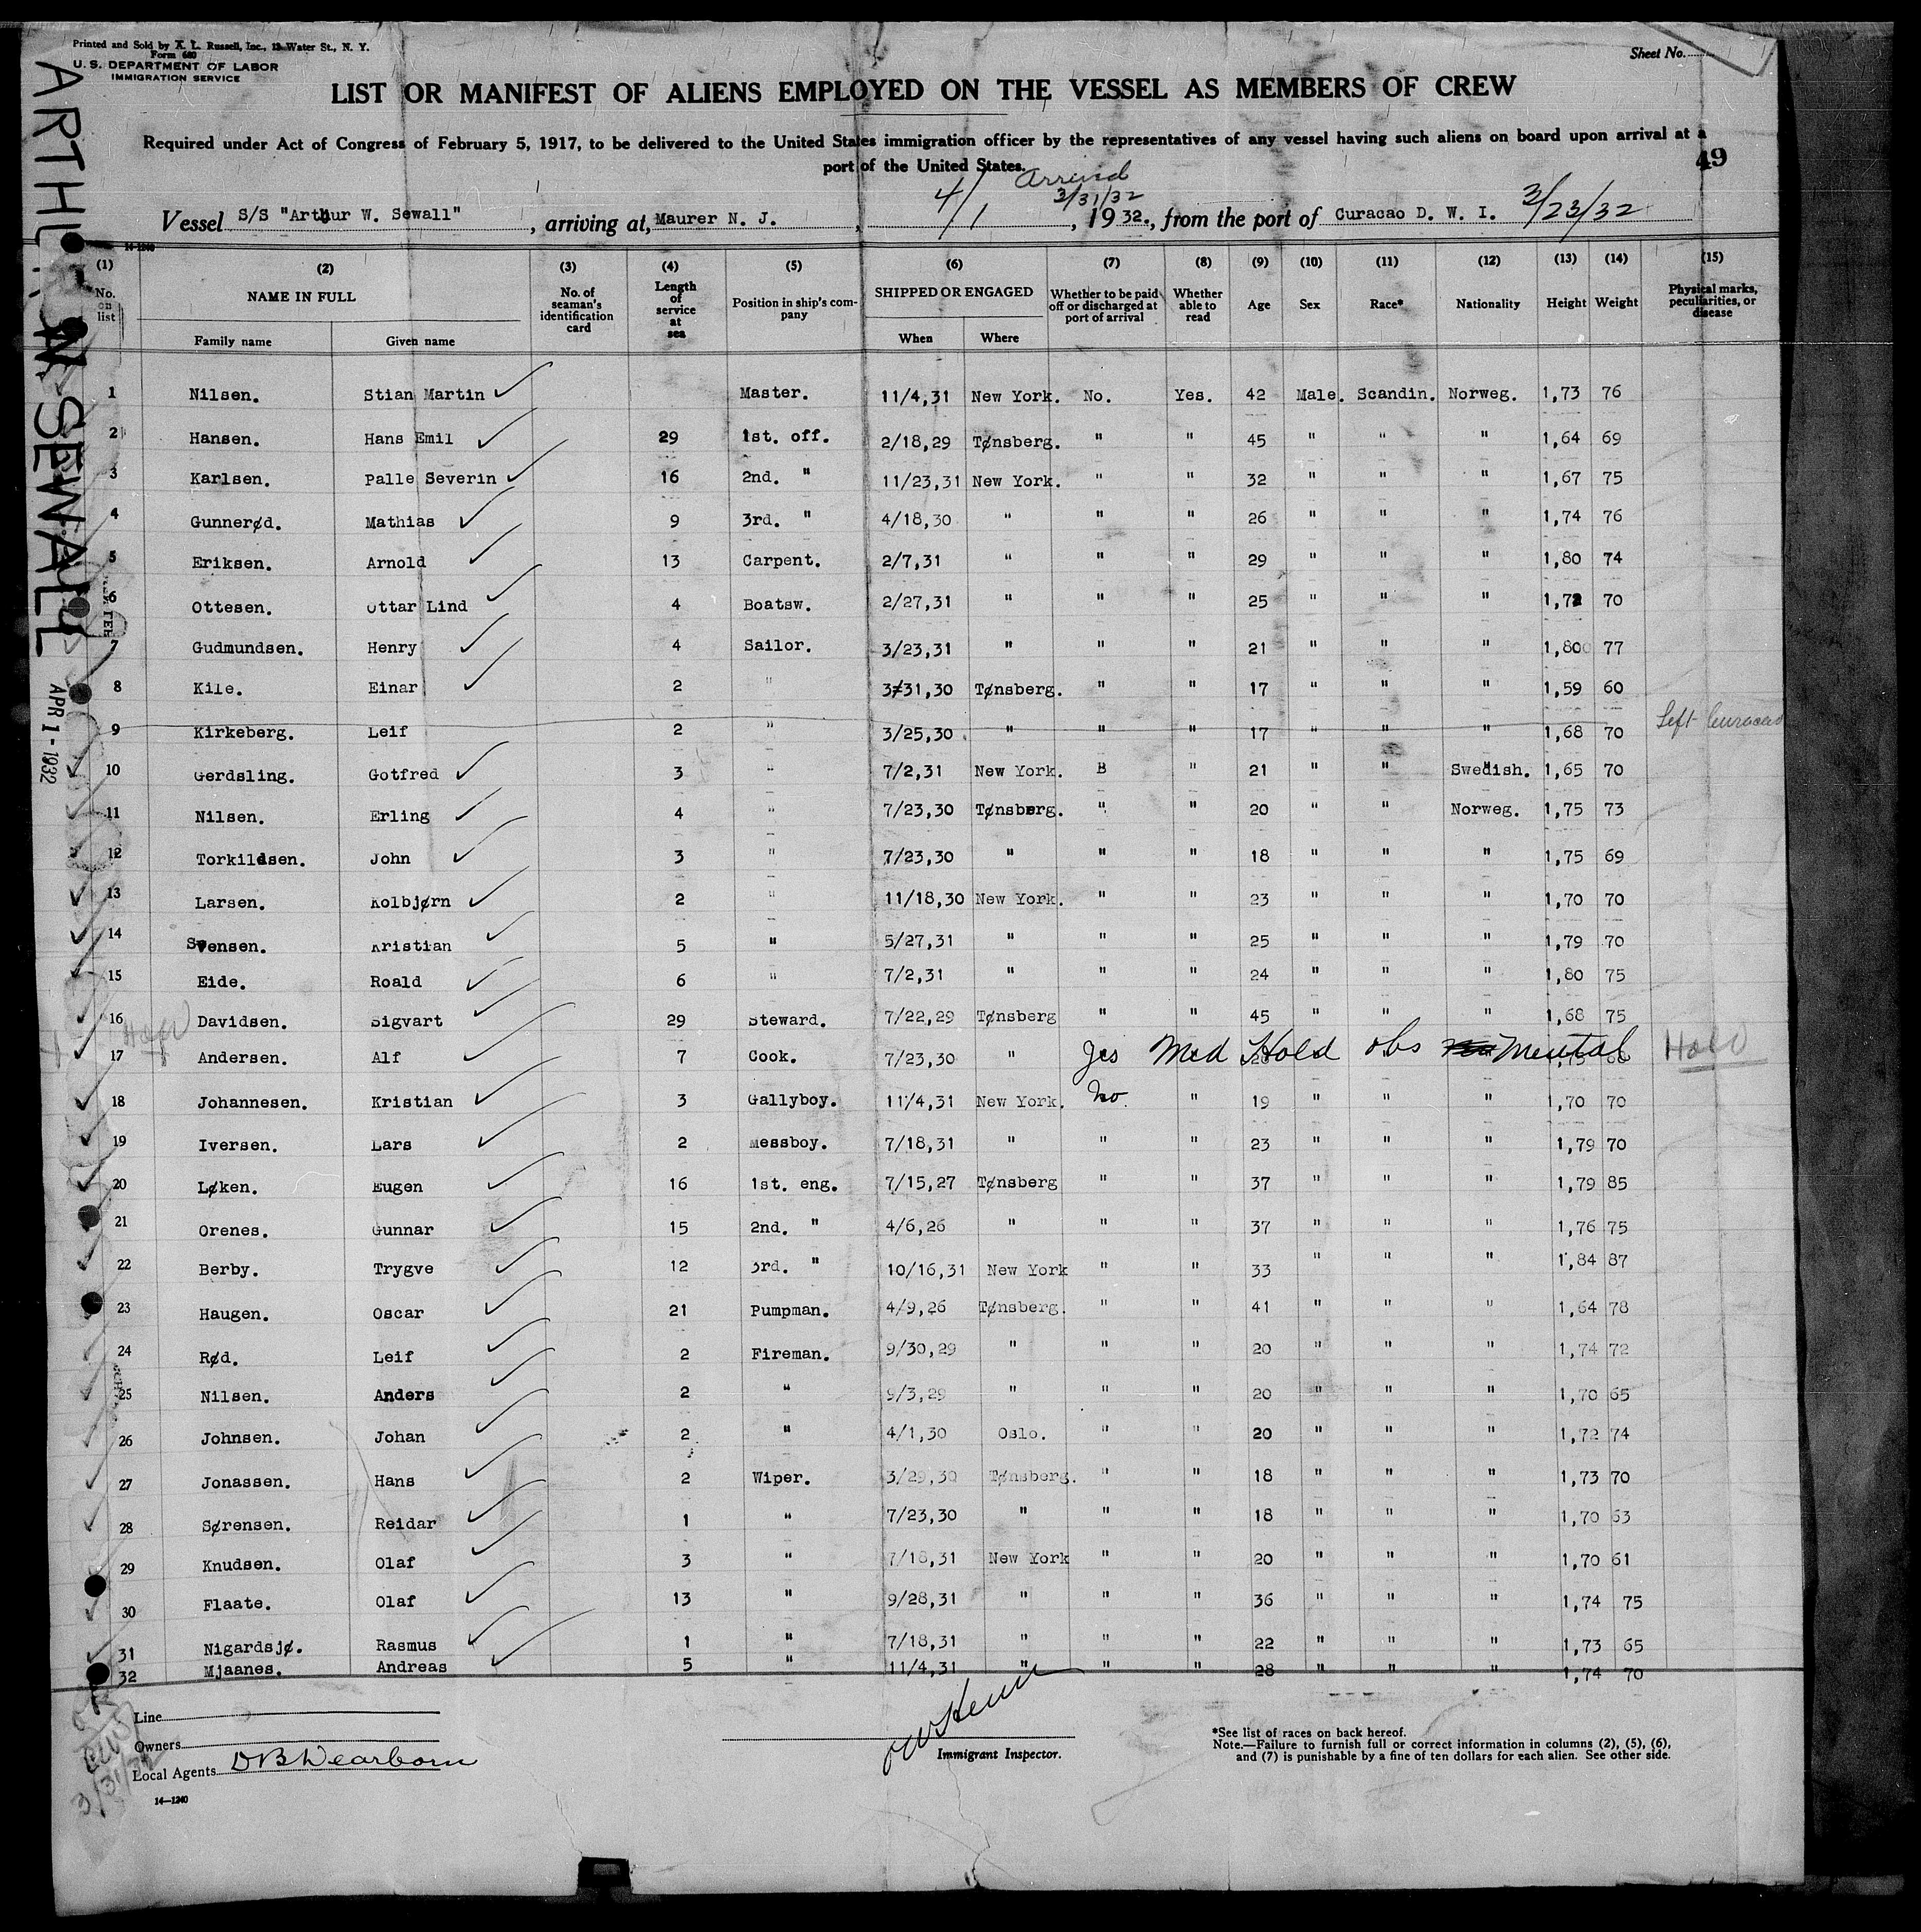 Printed and Sold by A. L. Russell, Inc., 13 Water St., N. Y.
Form 680
U. S. DEPARTMENT OF LABOR
IMMIGRATION SERVICE
Sheet No.
LIST OR MANIFEST OF ALIENS EMPLOYED ON THE VESSEL AS MEMBERS OF CREW
Required under Act of Congress of February 5, 1917, to be delivered to the United States immigration officer by the representatives of any vessel having such aliens on board upon arrival at a
port of the United States.
49
Arrived
3/31/32
Vessel S/S "Arthur W. Sewall", arriving at, Maurer N. J., 4/1, 1932., from the port of Curacao D. W. I. 3/23/32
14-1240
ARTHUR W. SEWALL
APR 1 - 1932
(1) (2) (3) (4) (5) (6) (7) (8) (9) (10) (11) (12) (13) (14) (15)
No. on list NAME IN FULL No. of seaman's identification card Length of service at sea Position in ship's company SHIPPED OR ENGAGED Whether to be paid off or discharged at port of arrival Whether able to read Age Sex Race* Nationality Height Weight Physical marks, peculiarities, or disease
Family name Given name When Where
1 Nilsen. Stian Martin Master. 11/4,31 New York. No. Yes. 42 Male. Scandin. Norweg. 1,73 76
2 Hansen. Hans Emil 29 1st. off. 2/18,29 Tønsberg. " " 45 " " " 1,64 69
3 Karlsen. Palle Severin 16 2nd. " 11/23,31 New York. " " 32 " " " 1,67 75
4 Gunnerød. Mathias 9 3rd. " 4/18,30 " " " 26 " " " 1,74 76
5 Eriksen. Arnold 13 Carpent. 2/7,31 " " " 29 " " " 1,80 74
6 Ottesen. Ottar Lind 4 Boatsw. 2/27,31 " " " 25 " " " 1,72 70
7 Gudmundsen. Henry 4 Sailor. 3/23,31 " " " 21 " " " 1,80 77
8 Kile. Einar 2 " 3/31,30 Tønsberg. " " 17 " " " 1,59 60
9 Kirkeberg. Leif 2 " 3/25,30 " " " 17 " " " 1,68 70 Left Curacao
10 Gerdsling. Gotfred 3 " 7/2,31 New York. B " 21 " " Swedish. 1,65 70
11 Nilsen. Erling 4 " 7/23,30 Tønsberg. " " 20 " " Norweg. 1,75 73
12 Torkildsen. John 3 " 7/23,30 " " " 18 " " " 1,75 69
13 Larsen. Kolbjørn 2 " 11/18,30 New York. " " 23 " " " 1,70 70
14 Svensen. Kristian 5 " 5/27,31 " " " 25 " " " 1,79 70
15 Eide. Roald 6 " 7/2,31 " " " 24 " " " 1,80 75
16 Davidsen. Sigvart 29 Steward. 7/22,29 Tønsberg " " 45 " " " 1,68 75
Hold
17 Andersen. Alf 7 Cook. 7/23,30 " Yes Med Hold obs Mental Hold
18 Johannesen. Kristian 3 Gallyboy. 11/4,31 New York. No. " 19 " " " 1,70 70
19 Iversen. Lars 2 Messboy. 7/18,31 " " " 23 " " " 1,79 70
20 Løken. Eugen 16 1st. eng. 7/15,27 Tønsberg " " 37 " " " 1,79 85
21 Orenes. Gunnar 15 2nd. " 4/6,26 " " " 37 " " " 1,76 75
22 Berby. Trygve 12 3rd. " 10/16,31 New York " " 33 " " " 1,84 87
23 Haugen. Oscar 21 Pumpman. 4/9,26 Tønsberg. " " 41 " " " 1,64 78
24 Rød. Leif 2 Fireman. 9/30,29 " " " 20 " " " 1,74 72
25 Nilsen. Anders 2 " 9/3,29 " " " 20 " " " 1,70 65
26 Johnsen. Johan 2 " 4/1,30 Oslo. " " 20 " " " 1,72 74
27 Jonassen. Hans 2 Wiper. 3/29,30 Tønsberg. " " 18 " " " 1,73 70
28 Sørensen. Reidar 1 " 7/23,30 " " " 18 " " " 1,70 63
29 Knudsen. Olaf 3 " 7/18,31 New York " " 20 " " " 1,70 61
30 Flaate. Olaf 13 " 9/28,31 " " " 36 " " " 1,74 75
31 Nigardsjø. Rasmus 1 " 7/18,31 " " " 22 " " " 1,73 65
32 Mjaanes. Andreas 5 " 11/4,31 " " " 28 " " " 1,74 70
Line
Owners
Local Agents D B Dearborn
14-1240
3/31/32
Immigrant Inspector.
*See list of races on back hereof.
Note.—Failure to furnish full or correct information in columns (2), (5), (6),
and (7) is punishable by a fine of ten dollars for each alien. See other side.